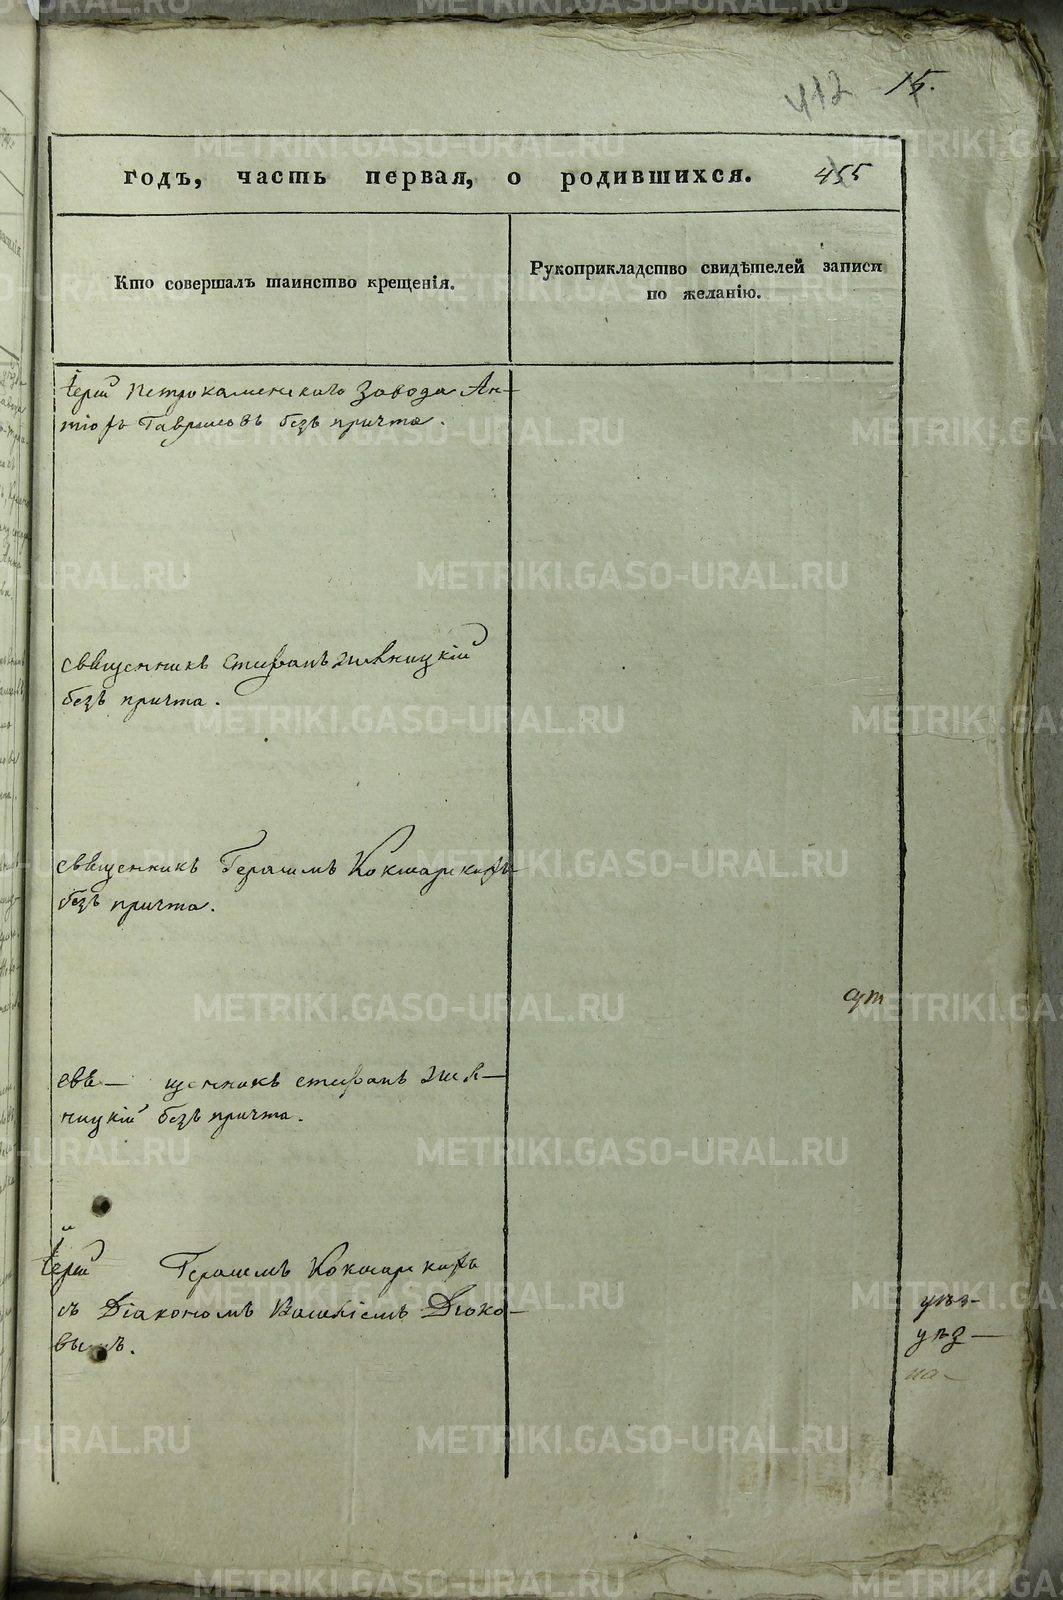 412 15.
годъ, часть первая, о родившихся. 455
Кто совершалъ таинство крещенія.
Рукоприкладство свидѣтелей записи
по желанію.
Іерей Петрокаменскаго завода Ан-
Гавриловъ безъ причта.
священникъ Стефанъ
безъ причта.
священникъ Герасимъ Кокшарскихъ
безъ причта.
свѣ— щенникъ стефанъ
ницкій безъ причта.
Іерей Герасимъ Кокшарскихъ
съ Діакономъ Василіемъ Дюко-
вымъ.
METRIKI.GASO-URAL.RU